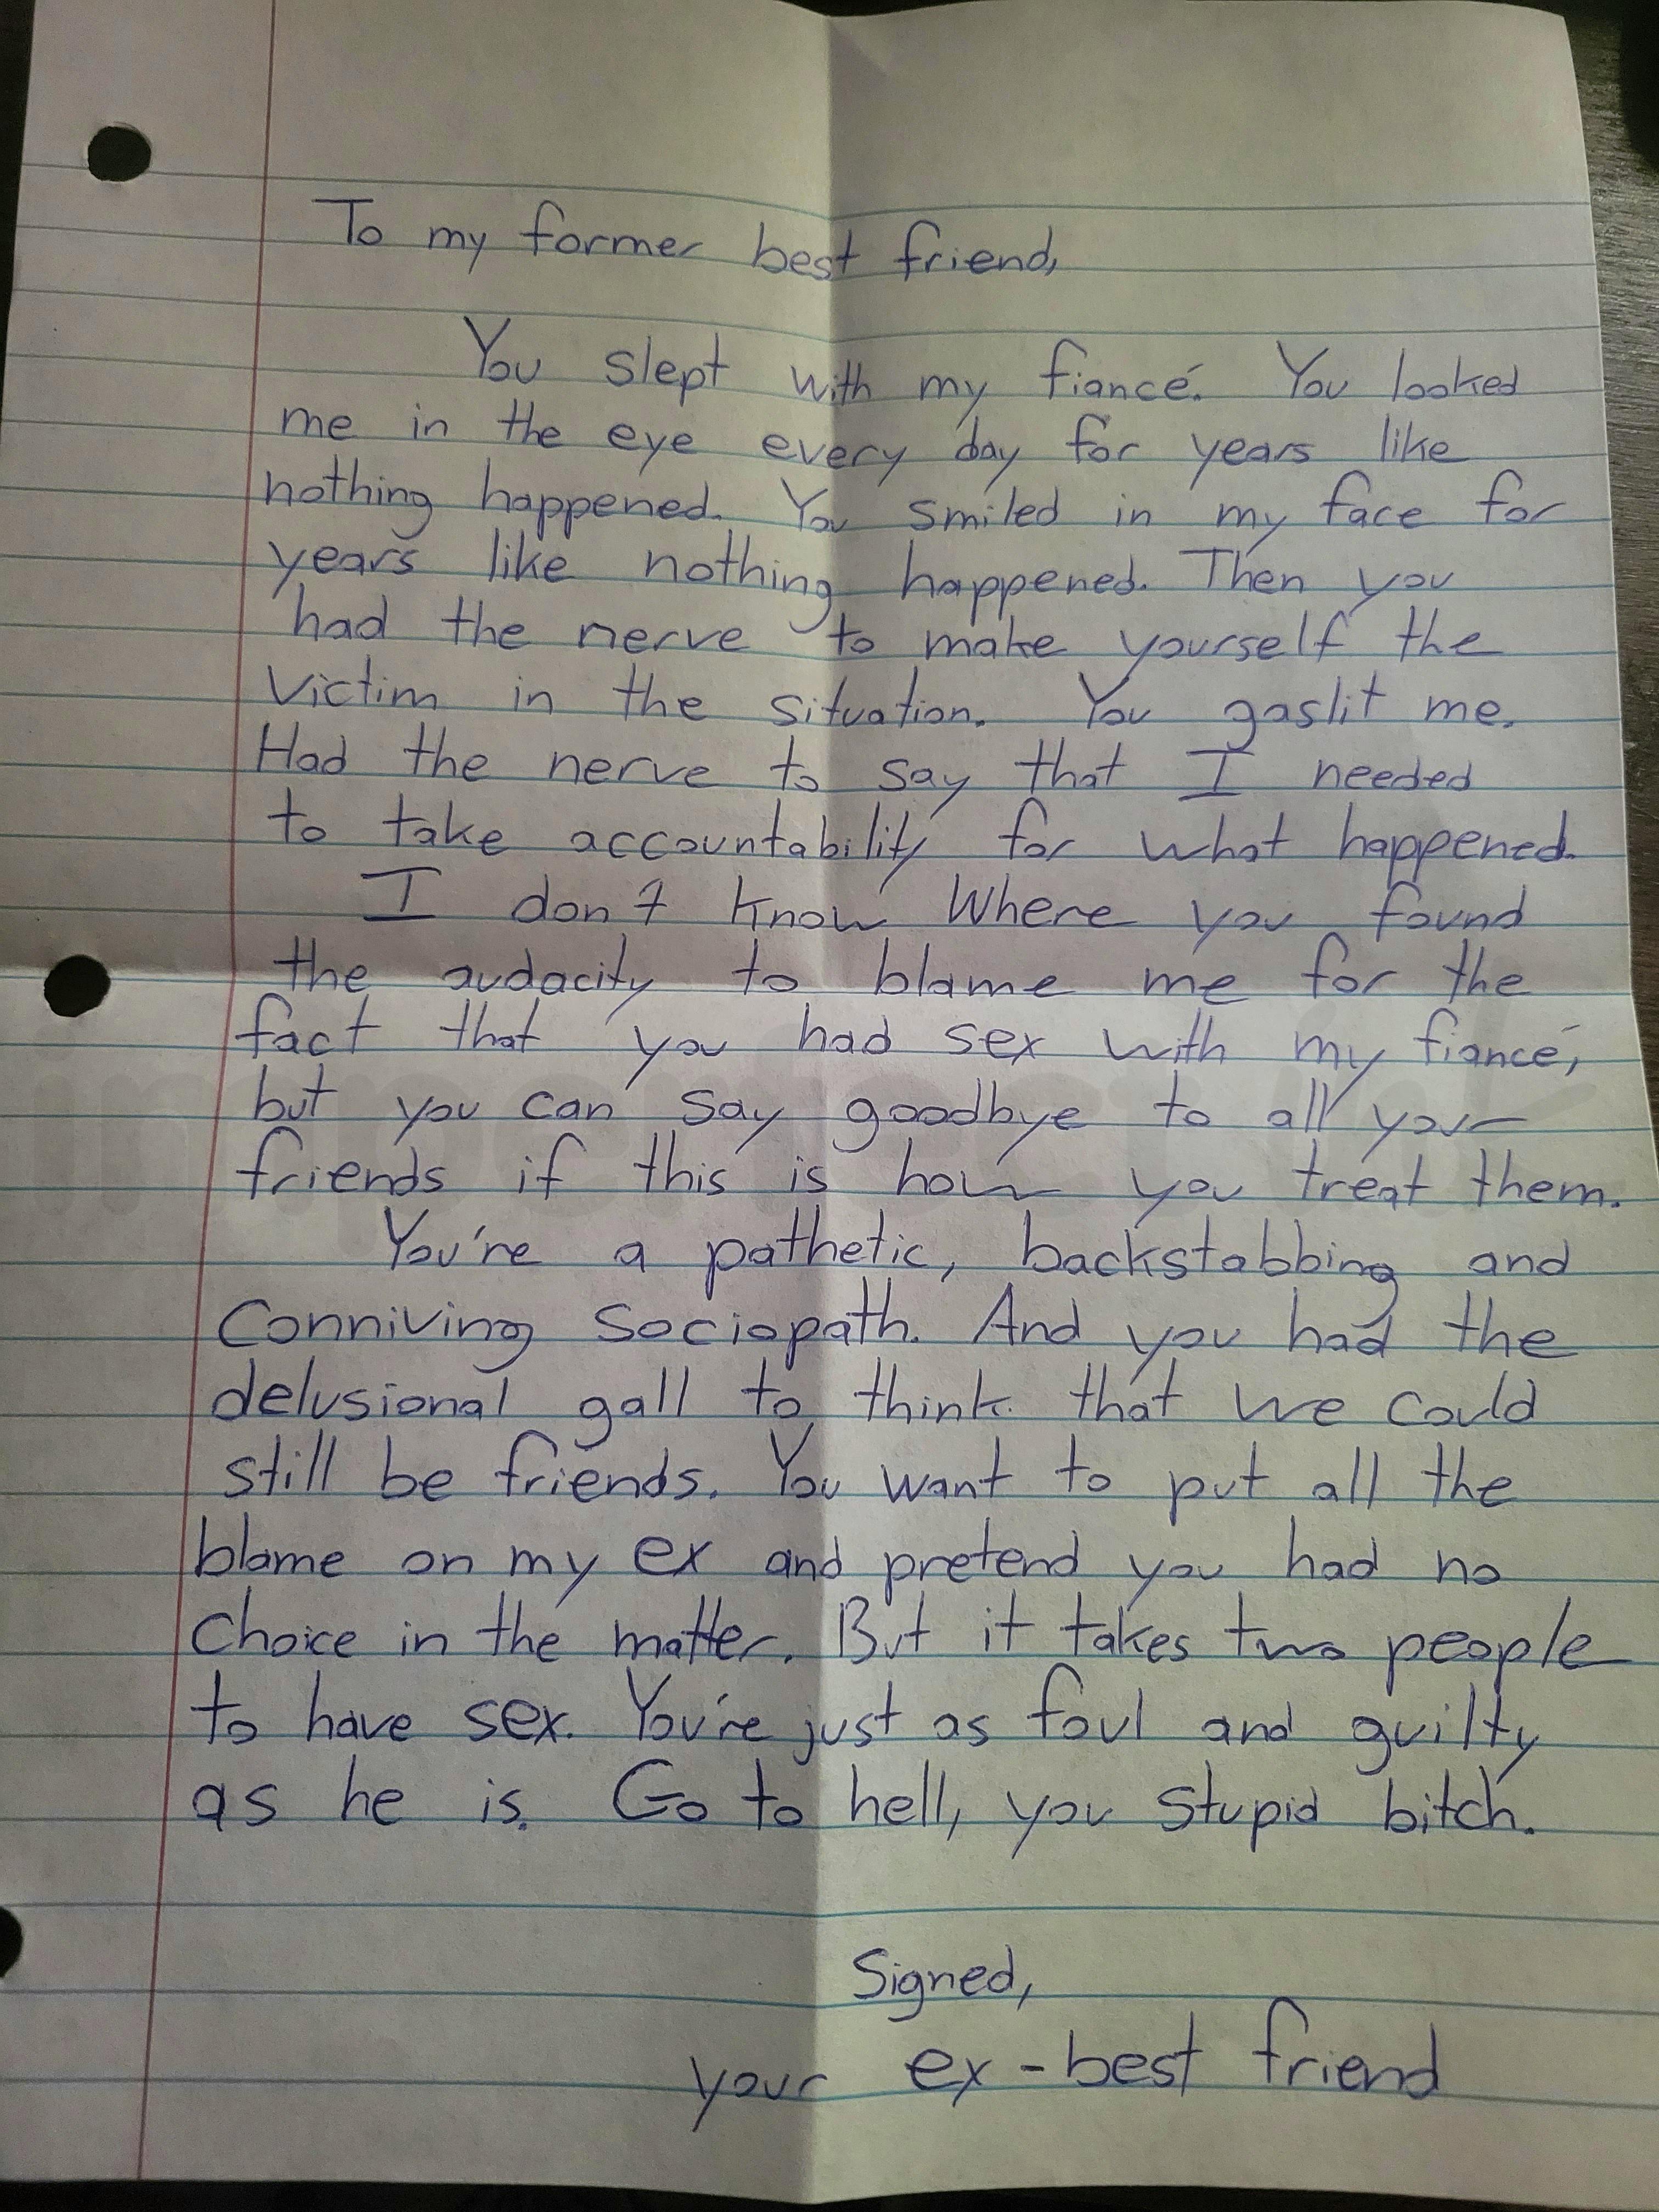 To my former best friend,
You slept with my fiancé. You looked
me in the eye every day for years like
nothing happened. You smiled in my face for
years like nothing happened. Then you
had the nerve to make yourself the
victim in the situation. You gaslit me.
Had the nerve to say that I needed
to take accountability for what happened.
I don't know where you found
the audacity to blame me for the
fact that you had sex with my fiancé,
but you can say goodbye to all your
friends if this is how you treat them.
You're a pathetic, backstabbing and
conniving sociopath. And you had the
delusional gall to think that we could
still be friends. You want to put all the
blame on my ex and pretend you had no
choice in the matter. But it takes two people
to have sex. You're just as foul and guilty
as he is. Go to hell, you stupid bitch.
Signed,
your ex-best friend